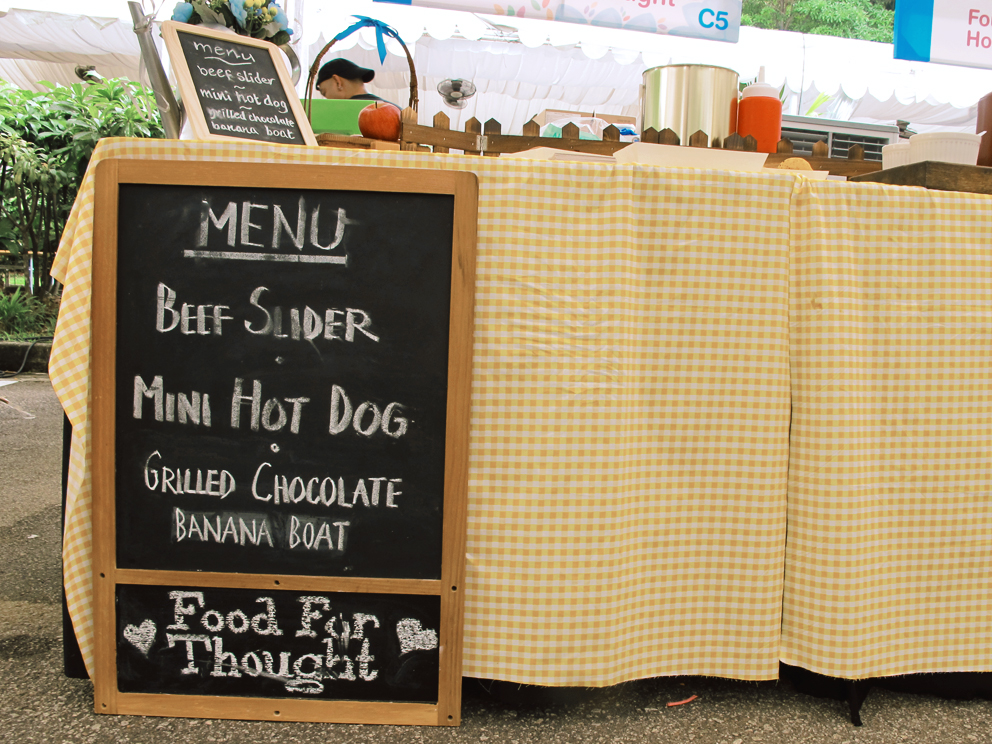 ght
C5
Fo
Ho
menu
beef slider
~
mini hot dog
~
grilled chocolate
banana boat
MENU
BEEF SLIDER
MINI HOT DOG
GRILLED CHOCOLATE
BANANA BOAT
Food For
Thought